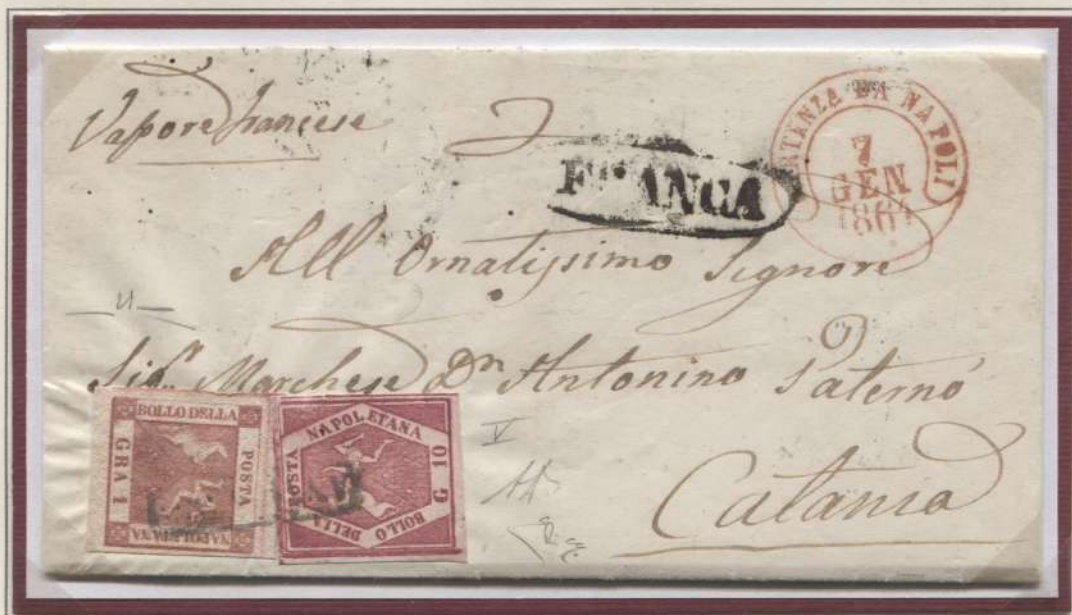 Vapore francese
FRANCA
RTENZA DA NAPOLI
7
GEN
1861
All Ornatissimo Signore
Sig.r Marchese Dn Antonino Paternó
Catania
BOLLO DELLA
POSTA
NAPOLETANA
GRA 1
BOLLO DELLA POSTA NAPOLETANA
G 10